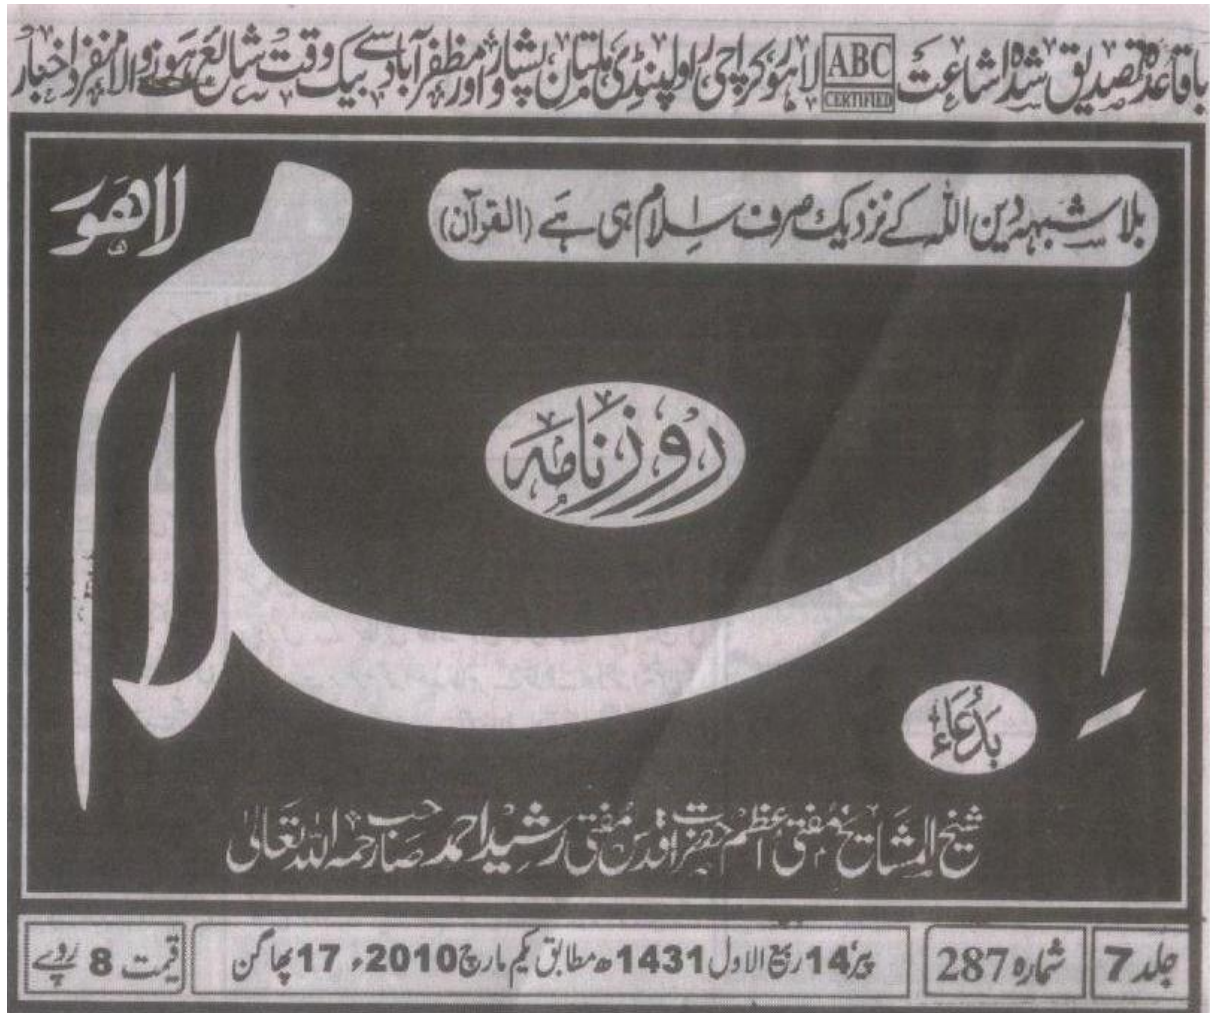 باقاعدہ تصدیق شدہ اشاعت ABC CERTIFIED لاہور کراچی راولپنڈی ملتان پشاور اور مظفرآباد سے بیک وقت شائع ہونے والا منفرد اخبار
بلاشبہ دین اللہ کے نزدیک صرف اسلام ہی ہے (القرآن)
لاہور
روزنامہ
اِسلام
بدُعاء
شیخ المشائخ مفتی اعظم حضرت اقدس مفتی رشید احمد صاحب رحمہ اللہ تعالیٰ
جلد 7 شمارہ 287 پیر 14 ربیع الاول 1431ھ مطابق یکم مارچ 2010ء 17 پھاگن قیمت 8 روپے